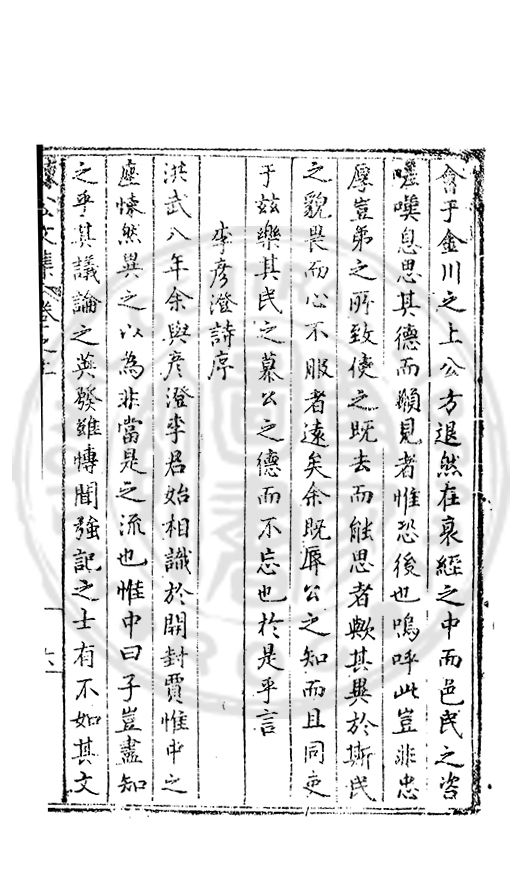 會于金川之上公方退然在衰絰之中而邑民之咨
嗟嘆息思其德而願見者惟恐後也嗚呼此豈非忠
厚豈弟之所致使之既去而能思者歟其異於斯民
之貌畏而心不服者遠矣余既辱公之知而且同吏
于兹樂其民之慕公之德而不忘也於是乎言
李彦澄詩序
洪武八年余與彦澄李君始相識於開封賈惟中之
座悚然異之以為非當是之流也惟中曰子豈盡知
之乎其議論之英發雖慱聞強記之士有不如其文
文集卷之
六